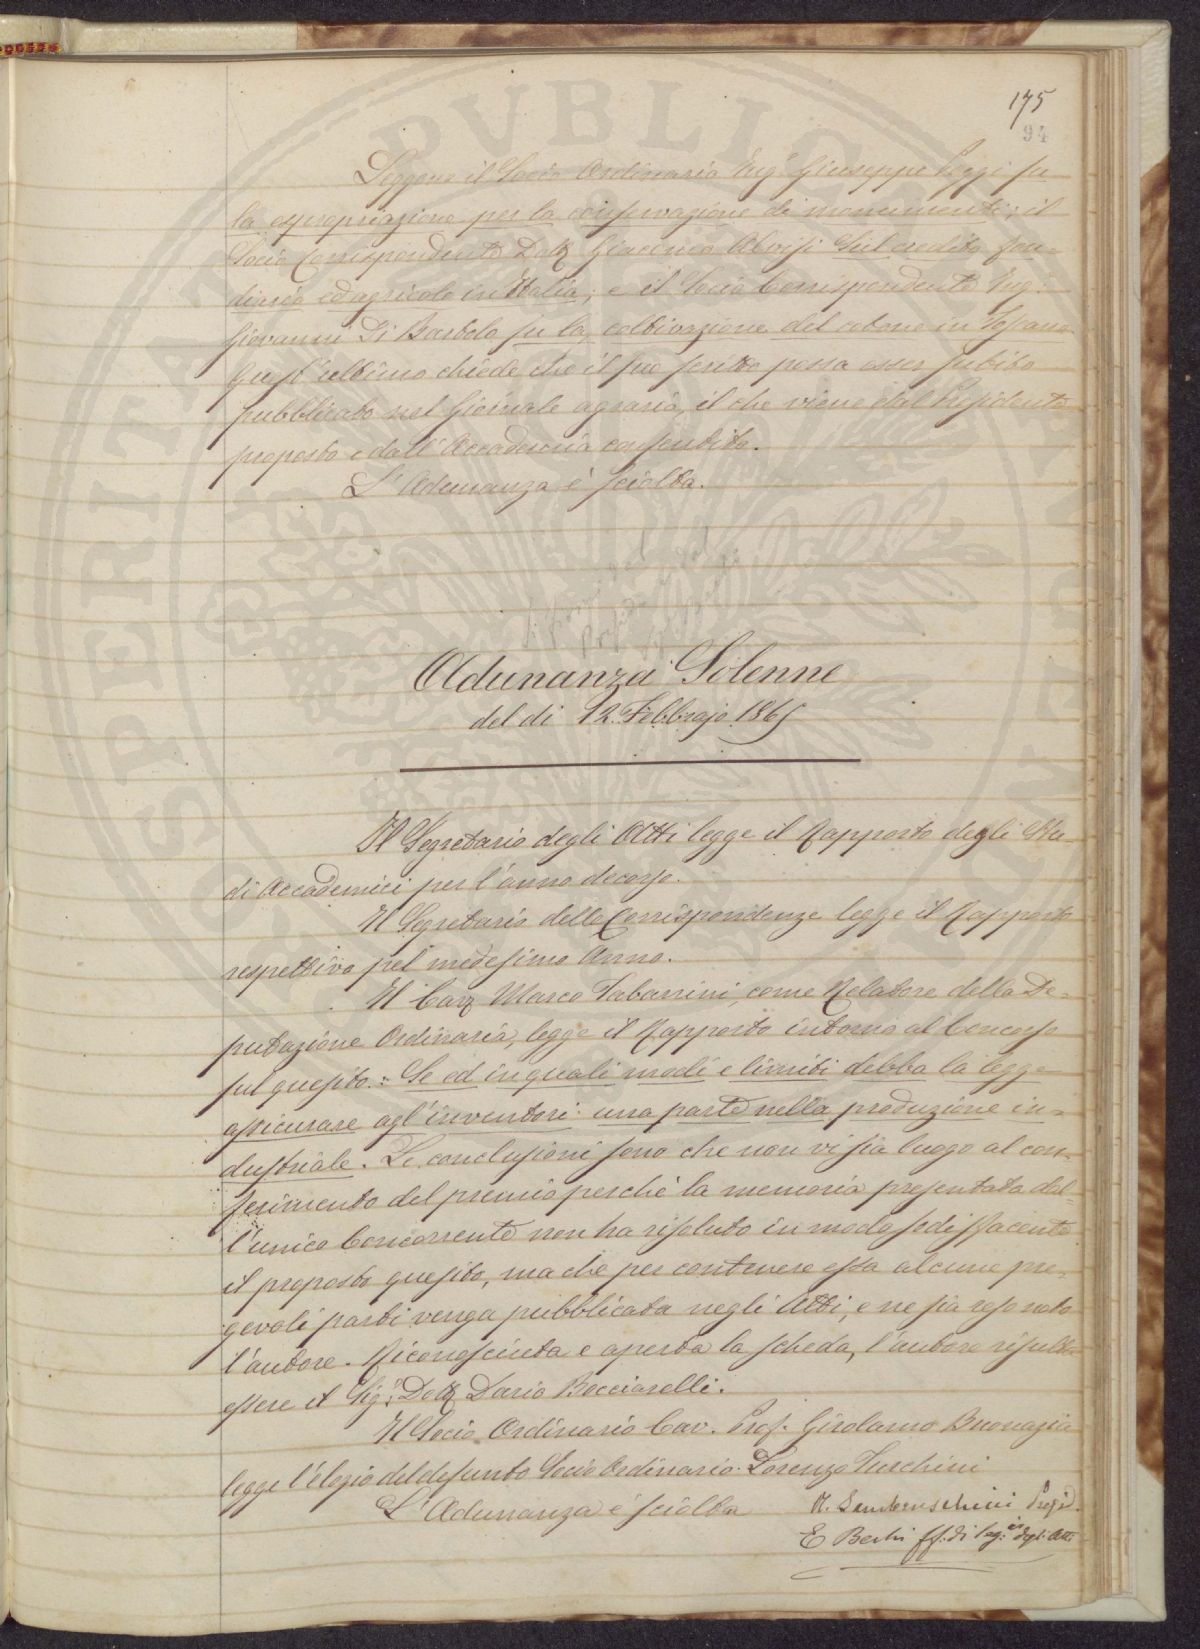 175
94
Leggono il Socio Ordinario Ing.e Giuseppe Poggi su
la espropriazione per la conservazione di monumenti; il
Socio Corrispondente Dott. Giacomo Alvisi sul credito fon-
diario ed agricolo in Italia; e il Socio Corrispondente Ing.e
Giovanni Di Bartolo su la coltivazione del cotone in Toscana
Quest'ultimo chiede che il suo scritto possa esser subito
pubblicato nel Giornale agrario, il che viene dal Presidente
proposto e dall'Accademia consentito.
L'Adunanza è sciolta.
Adunanza Solenne
del dì 12 Febbrajo 1865
Il Segretario degli Atti legge il Rapporto degli Stu-
di Accademici per l'anno decorso.
Il Segretario delle Corrispondenze legge il Rapporto
respettivo pel medesimo Anno.
Il Cav. Marco Tabarrini, come Relatore della De-
putazione Ordinaria, legge il Rapporto intorno al Concorso
sul quesito: Se ed in quali modi e limiti debba la legge
assicurare agl'inventori una parte nella produzione in-
dustriale. Le conclusioni sono che non vi sia luogo al con-
ferimento del premio perchè la memoria presentata dal-
l'unico Concorrente non ha risoluto in modo sodisfacente
il proposto quesito, ma che per contenere essa alcune pre-
gevoli parti venga pubblicata negli Atti, e ne sia reso noto
l'autore. Riconosciuta e aperta la scheda, l'autore risulta
essere il Sig.r Dott. Dario Bocciarelli.
Il Socio Ordinario Cav. Prof. Girolamo Buonazia
legge l'elogio del defunto Socio Ordinario Lorenzo Turchini
L'Adunanza è sciolta
R. Lambruschini Presid.
E Berti ff. di Seg.io degli Atti